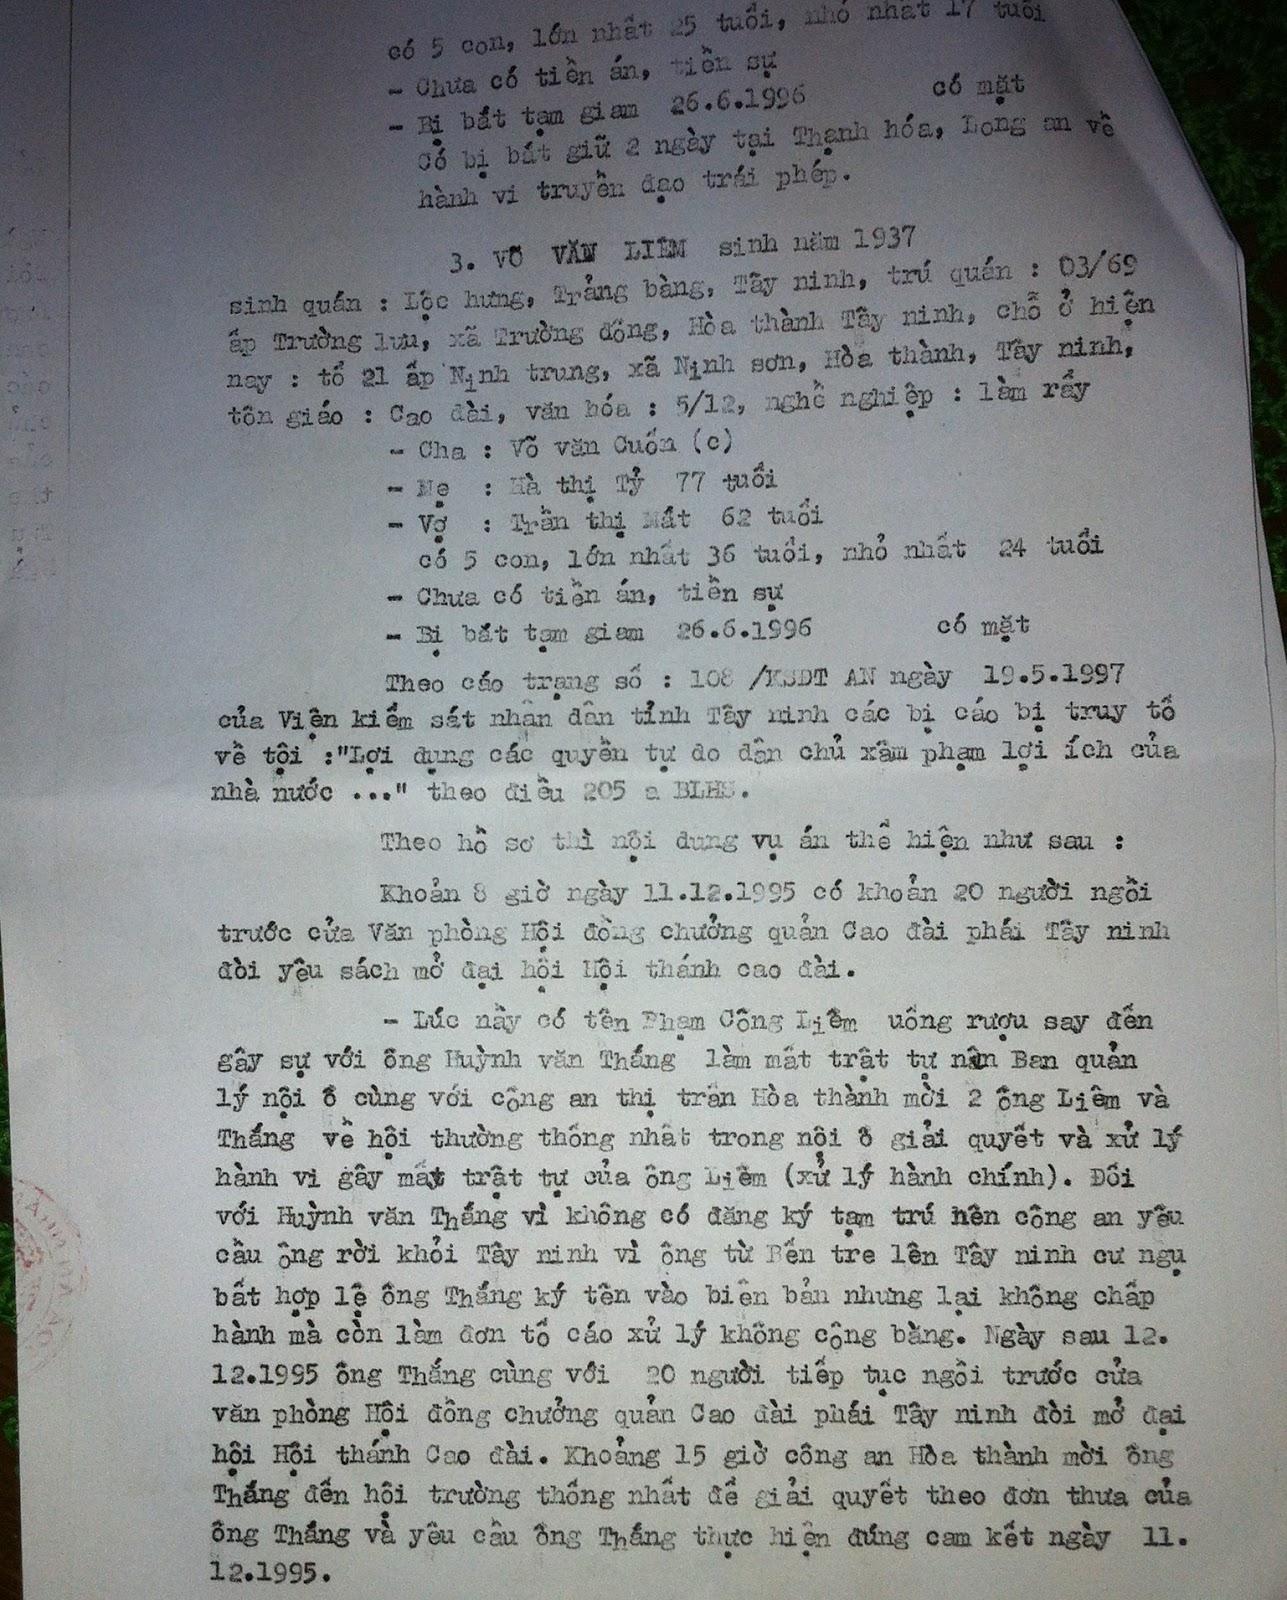 có 5 con, lớn nhất 25 tuổi, nhỏ nhất 17 tuổi
- Chưa có tiền án, tiền sự
- Bị bắt tạm giam 26.6.1996 có mặt
Có bị bắt giữ 2 ngày tại Thạnh hóa, Long an về
hành vi truyền đạo trái phép.
3. VÕ VĂN LIÊM sinh năm 1937
sinh quán : Lộc hưng, Trảng bàng, Tây ninh, trú quán : 03/69
ấp Trường lưu, xã Trường đông, Hòa thành Tây ninh, chỗ ở hiện
nay : tổ 21 ấp Ninh trung, xã Ninh sơn, Hòa thành, Tây ninh,
tôn giáo : Cao đài, văn hóa : 5/12, nghề nghiệp : làm rẩy
- Cha : Võ văn Cuốn (c)
- Mẹ : Hà thị Tỷ 77 tuổi
- Vợ : Trần thị Mát 62 tuổi
có 5 con, lớn nhất 36 tuổi, nhỏ nhất 24 tuổi
- Chưa có tiền án, tiền sự
- Bị bắt tạm giam 26.6.1996 có mặt
Theo cáo trạng số : 108 /KSDT AN ngày 19.5.1997
của Viện kiểm sát nhân dân tỉnh Tây ninh các bị cáo bị truy tố
về tội :"Lợi dụng các quyền tự do dân chủ xâm phạm lợi ích của
nhà nước ..." theo điều 205 a BLHS.
Theo hồ sơ thì nội dung vụ án thể hiện như sau :
Khoản 8 giờ ngày 11.12.1995 có khoản 20 người ngồi
trước cửa Văn phòng Hội đồng chưởng quản Cao đài phái Tây ninh
đòi yêu sách mở đại hội Hội thánh cao đài.
- Lúc nầy có tên Phạm Công Liềm uống rượu say đến
gây sự với ông Huỳnh văn Thắng làm mất trật tự nên Ban quản
lý nội ô cùng với công an thị trấn Hòa thành mời 2 ông Liêm và
Thắng về hội thường thống nhất trong nội ô giải quyết và xử lý
hành vi gây mất trật tự của ông Liềm (xử lý hành chính). Đối
với Huỳnh văn Thắng vì không có đăng ký tạm trú nên công an yêu
cầu ông rời khỏi Tây ninh vì ông từ Bến tre lên Tây ninh cư ngụ
bất hợp lệ ông Thắng ký tên vào biên bản nhưng lại không chấp
hành mà còn làm đơn tố cáo xử lý không công bằng. Ngày sau 12.
12.1995 ông Thắng cùng với 20 người tiếp tục ngồi trước cửa
văn phòng Hội đồng chưởng quản Cao đài phái Tây ninh đòi mở đại
hội Hội thánh Cao đài. Khoảng 15 giờ công an Hòa thành mời ông
Thắng đến hội trường thống nhất để giải quyết theo đơn thưa của
ông Thắng và yêu cầu ông Thắng thực hiện đúng cam kết ngày 11.
12.1995.